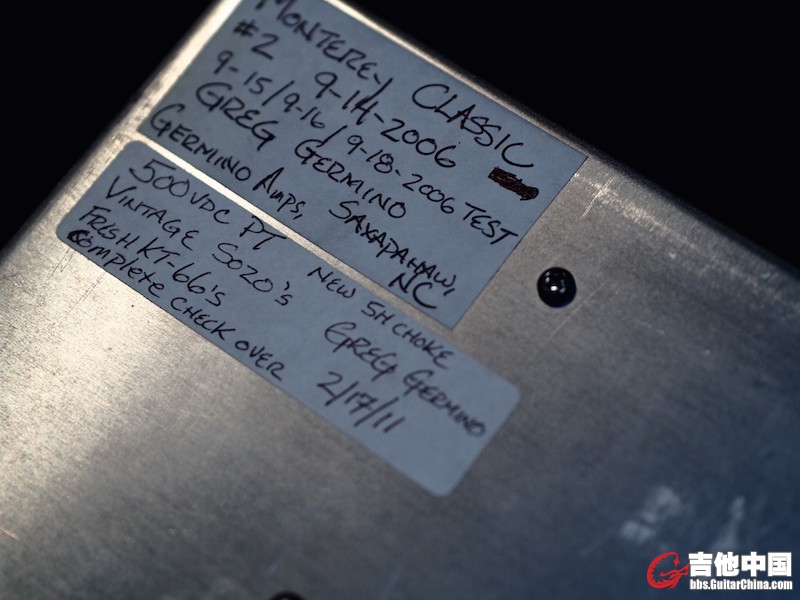 MONTEREY CLASSIC
#2 9-14-2006
9-15/9-16/9-18-2006 TEST
GREG GERMINO
GERMINO AMPS, SAXAPAHAW,
NC
500VDC PT NEW 5H CHOKE
VINTAGE SOZO'S GREG GERMINO
FRESH KT-66'S
COMPLETE CHECK OVER 2/17/11
吉他中国
bbs.GuitarChina.com